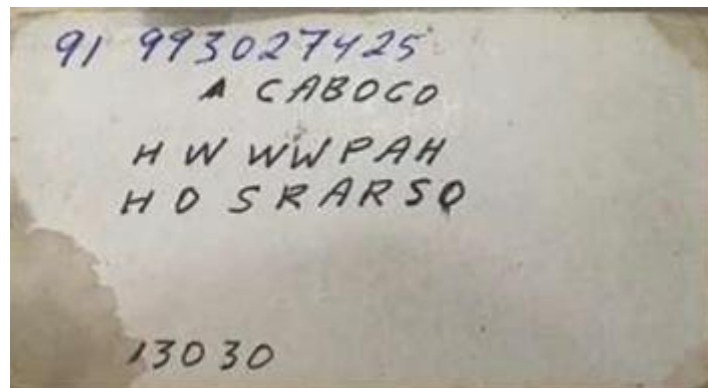 91 993027425
A CABOCO
H W WWPAH
H O SRARSO
13030